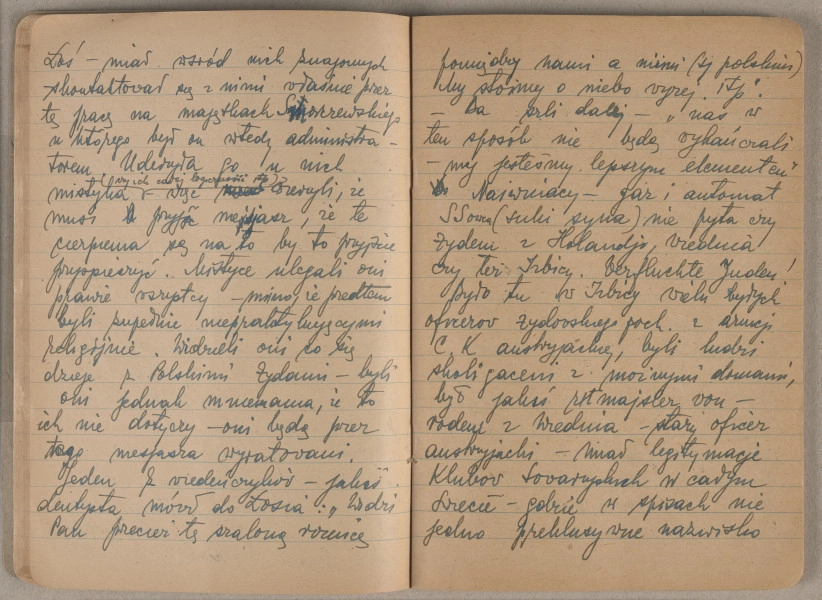 Łoś – miał wsród nich znajomych
skontaktował się z nimi właśnie przez
tę pracę na majątkach Skorzewskiego
u którego był on wtedy administra-
torem. Uderzyła go u nich
mistyka – więc wierzyli, że
musi przyjść mesjasz, że te
cierpienia są na to by to przyjście
przyspieszyć. Mistyce ulegali oni
prawie wszyscy – mimo, że przedtem
byli zupełnie niepraktykującymi
religijnie. Widzieli oni co się
dzieje z Polskimi żydami – byli
oni jednak mniemania, że to
ich nie dotyczy – oni będą przez
tego mesjasza wyratowani.
Jeden z wiedeńczyków – jakiś
dentysta mówił do Łosia: „Widzi
Pan przecież tę szaloną różnicę
pomiędzy nami a nimi (tj polskimi)
My stoimy o niebo wyżej. itp".
– Da szli dalej – „nas w
ten sposób nie będą wykańczali
– my jesteśmy lepszym elementem"
Naiwniacy – gaz i automat
SSowca (suki syna) nie pyta czy
żydem z Holandji, Wiednia
czy też Izbicy. Verfluchte Juden!
Było tu w Izbicy wielu byłych
oficerów żydowskiego poch. z armji
C.K. austryjackiej, byli ludzi
skoligaceni z możnymi domami,
był jakiś rotmajster von –
rodem z Wiednia – stary oficer
austryjacki – miał legitymacje
Klubów Towarzyskich w całym
świecie – gdzie w spisach nie
jedno nazwisko